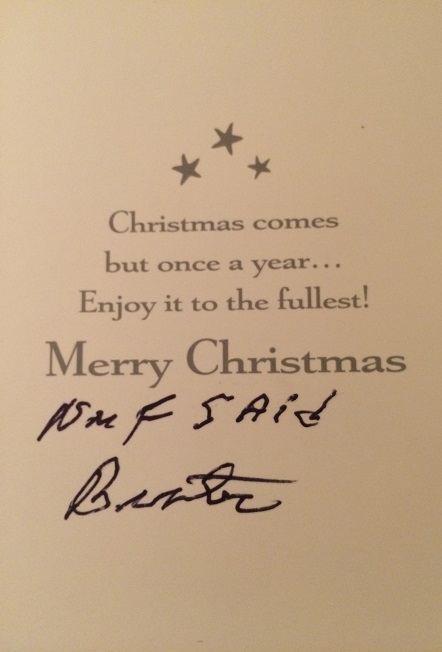 Christmas comes
but once a year...
Enjoy it to the fullest!
Merry Christmas
SAid